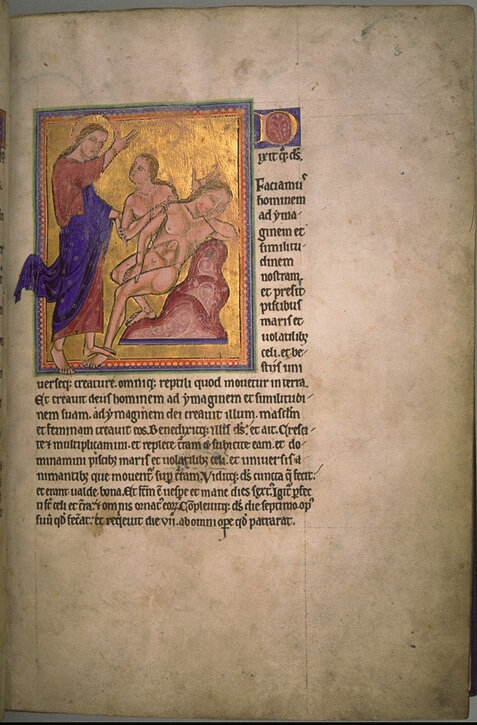 D
ixit q; ds.
Faciamus
hominem
ad yma
ginem et
similitu
dinem
nostram.
et presit
piscibus
maris et
uolatilib;
celi. et be
stiis uni
uerseq; creature. omniq; reptili quod mouetur in terra.
Et creauit deus hominem ad ymaginem et similitudi
nem suam. ad ymaginem dei creauit illum. masclm
et feminam creauit eos. Benedixitq; illis ds. et ait. Cresci
te & multiplicamini. et replete tram & subicite eam. et do
minamini piscib; maris et uolatilib; celi. et uniuersis a
nimantib; que mouent sup tram. Viditq; ds cuncta q fecit.
et erant ualde bona. Et fcm e uespe et mane dies sext. Igit pfec
ti st celi et tra. & omnis ornat eoz. Cõpleuitq; ds die septimo op
suu qd fecat. Et requeuit die vii. ab omni ope qd patrarat.